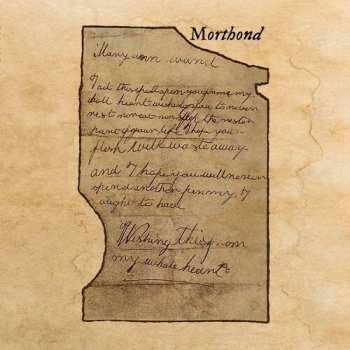 Morthond
Mary ann ward
I act this spell upon you from my
whole heart wishing you to never
rest nor eat nor sleep the resten
part of your life I hope your
flesh will waste away
and I hope you will never
spend another penny I
ought to have
Wishing this from
my whole heart